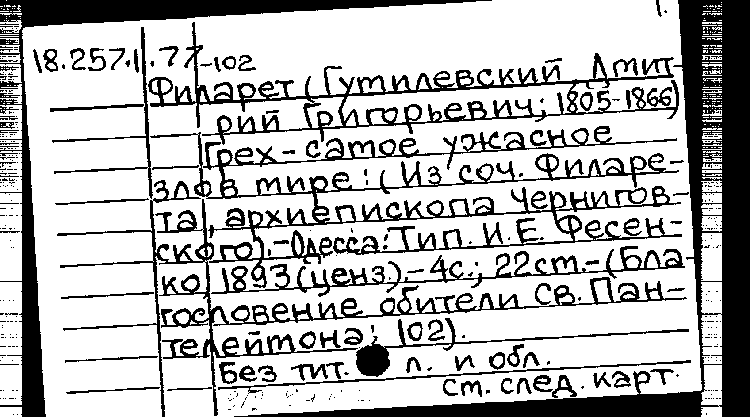 1.
18.257.1.77-102
Филарет (Гутилевский, Дмит-
рий Григорьевич; 1805-1866)
Грех – самое ужасное
зло в мире: (Из соч. Филаре-
та, архиепископа Чернигов-
ского). – Одесса: Тип. И.Е. Фесен-
ко, 1893 (ценз.). – 4с.; 22см. – (Бла-
гословение обители Св. Пан-
телеймона; 102).
Без тит. л. и обл.
См. след. карт.